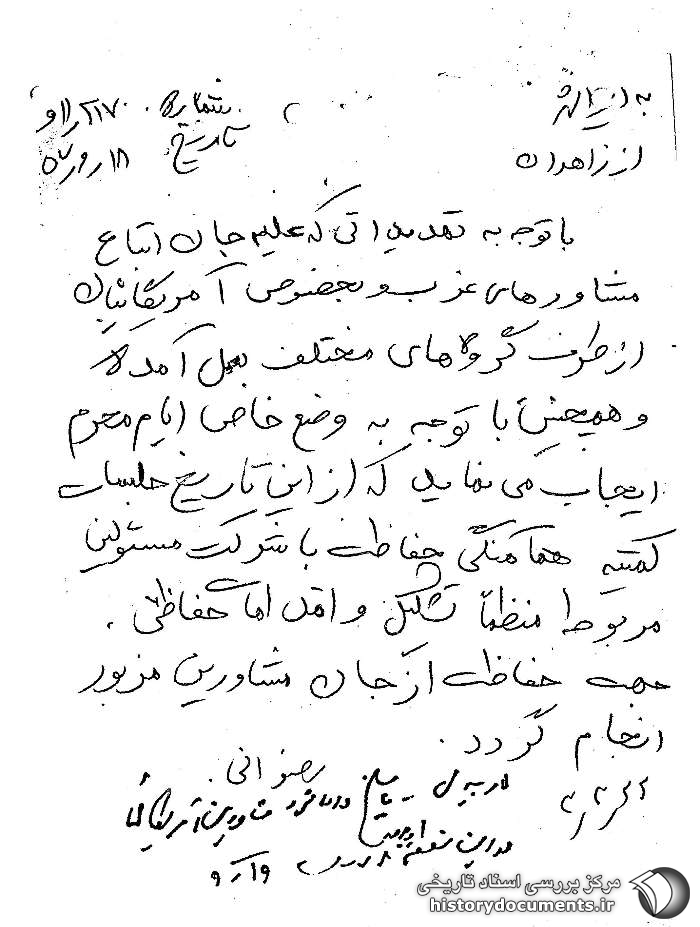 به ایرانشهر شماره ۲۱۷۰
از زاهدان تاریخ
با توجه به تهدیداتی که علیه جان اتباع
مشاورهای غرب و بخصوص آمریکائیان
از طرف گروه‌های مختلف بعمل آمده
و همچنین با توجه به وضع خاص ایام محرم
ایجاب می نماید که از این تاریخ جلسات
کمیته هماهنگی حفاظت با شرکت مسئولین
مربوط منظماً تشکیل و اقدامات حفاظتی
جهت حفاظت از جان مشاورین مزبور
انجام گردد.
رضوانی.
مرکز بررسی اسناد تاریخی
historydocuments.ir